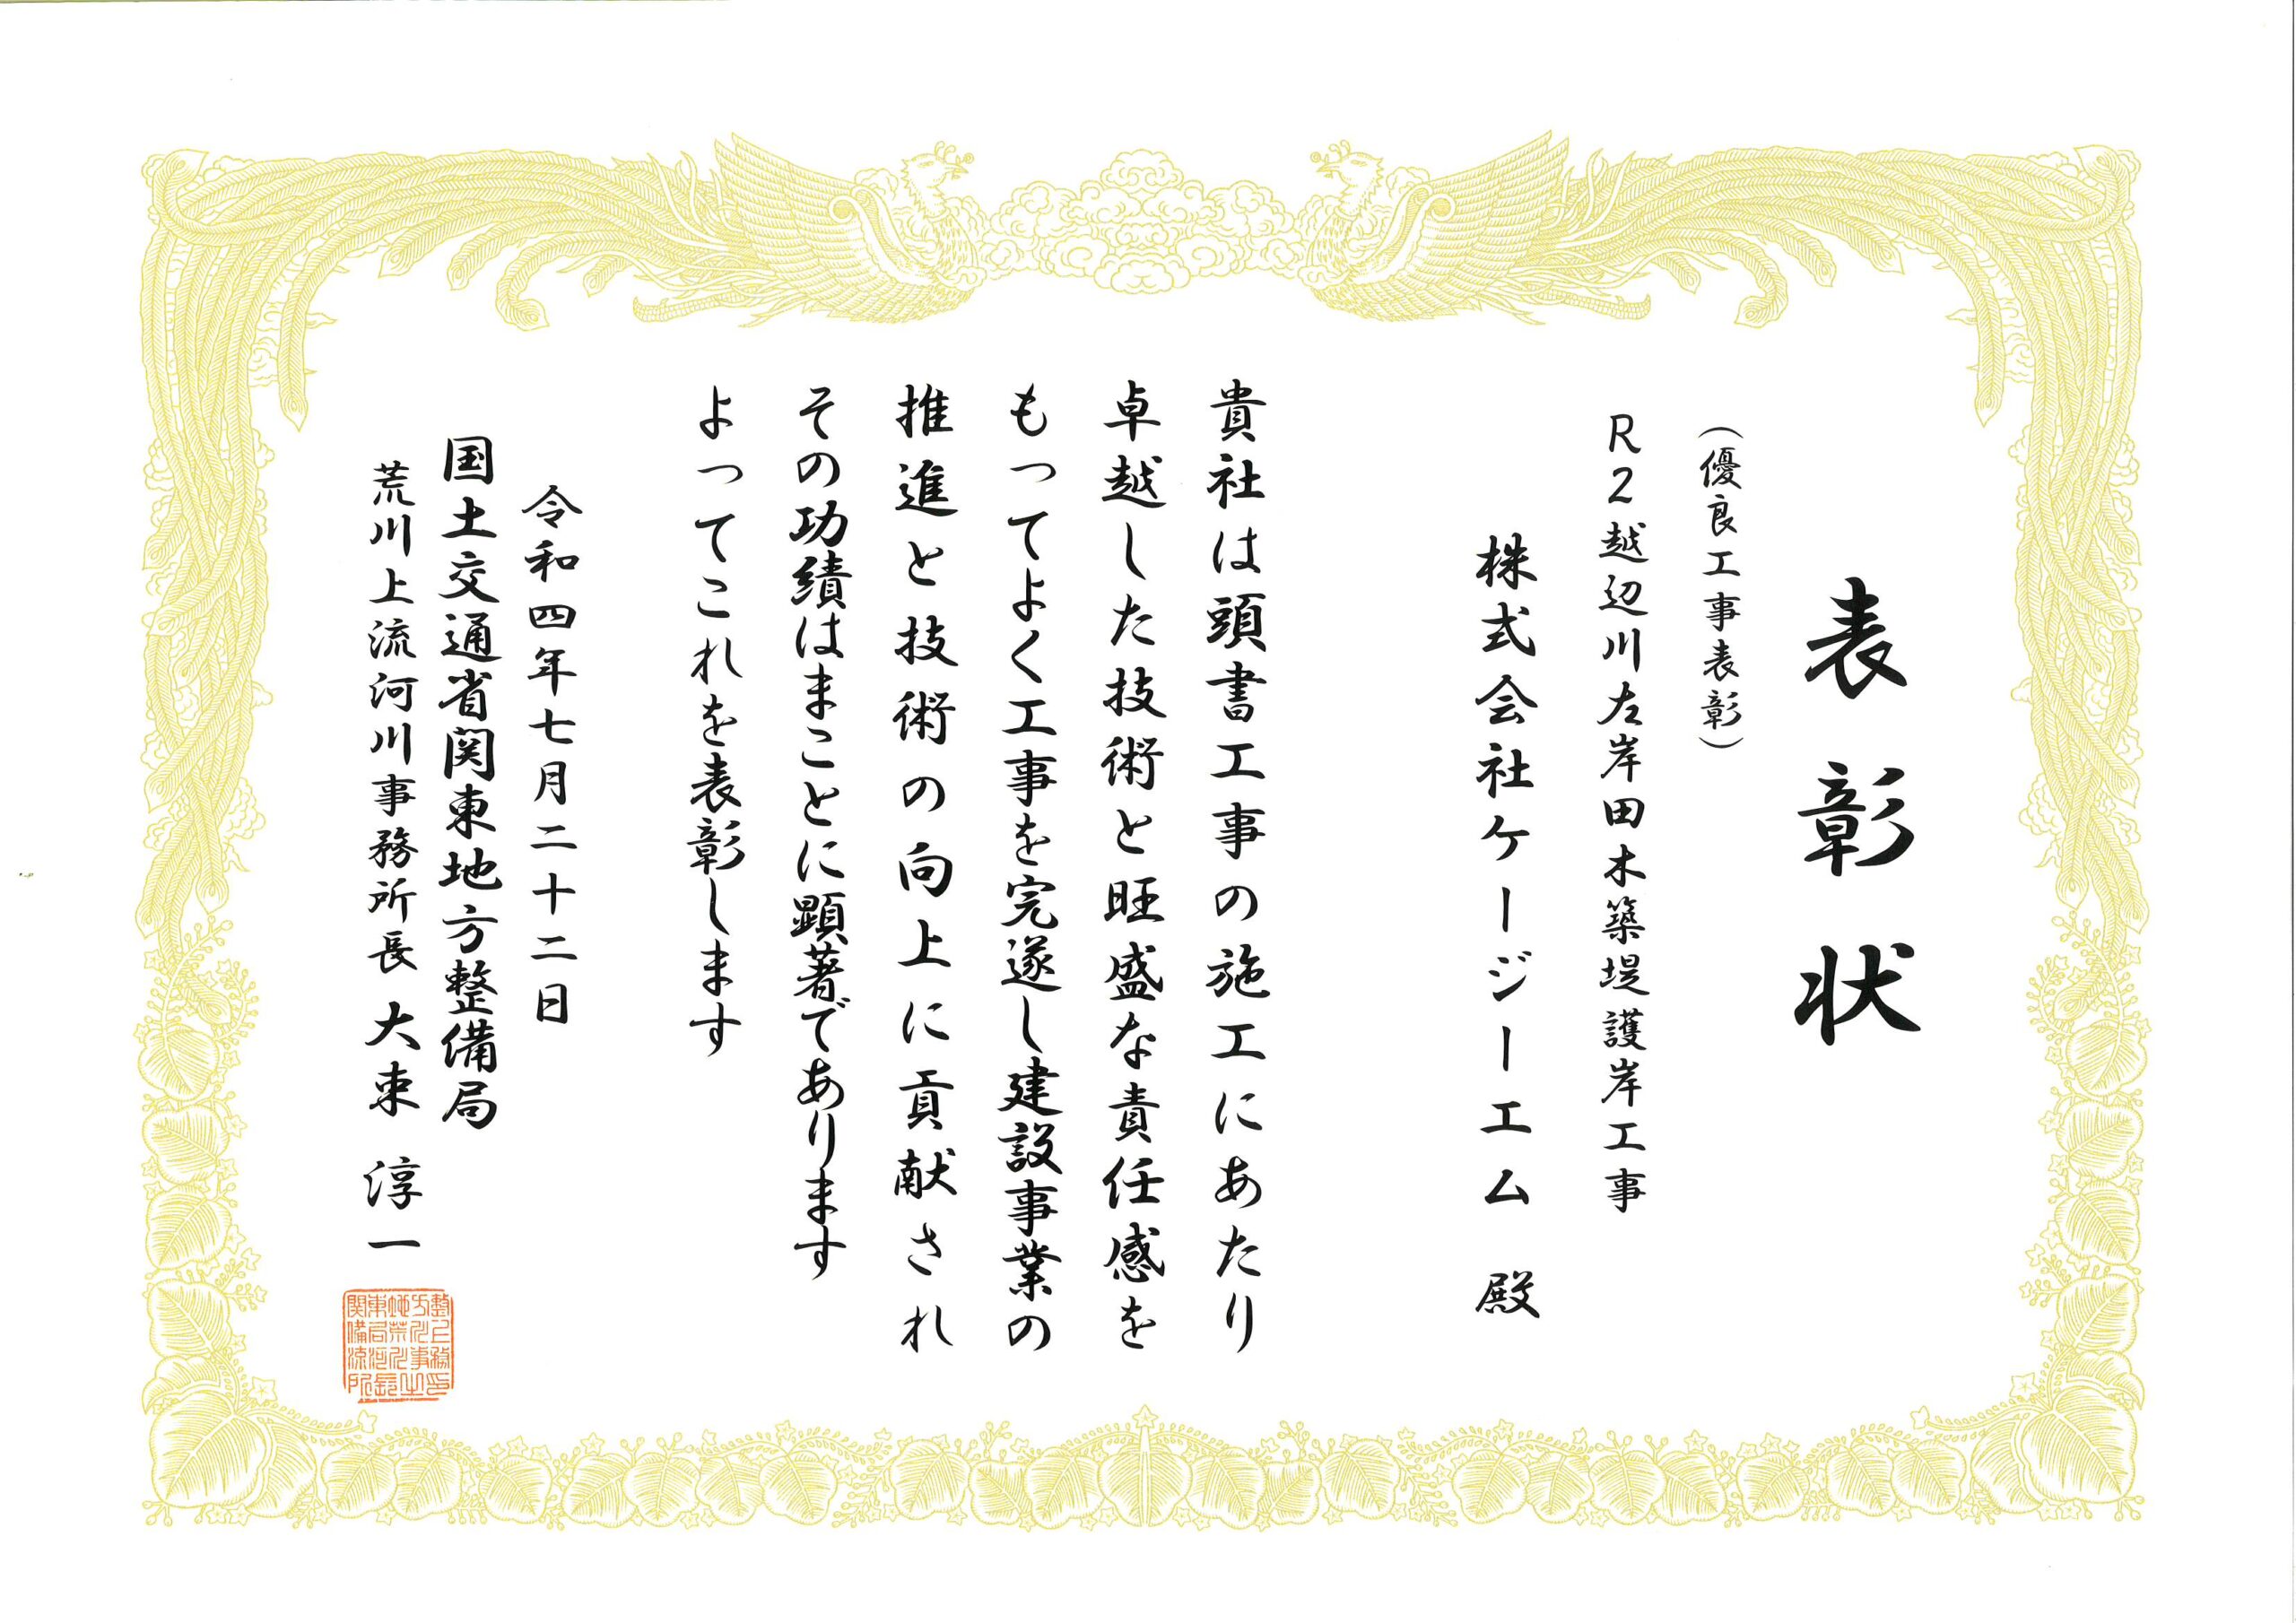 表彰状
（優良工事表彰）
R2越辺川左岸田木築堤護岸工事
株式会社ケージーエム 殿
貴社は頭書工事の施工にあたり
卓越した技術と旺盛な責任感を
もってよく工事を完遂し建設事業の
推進と技術の向上に貢献され
その功績はまことに顕著であります
よってこれを表彰します
令和四年七月二十二日
国土交通省関東地方整備局
荒川上流河川事務所長 大束 淳一